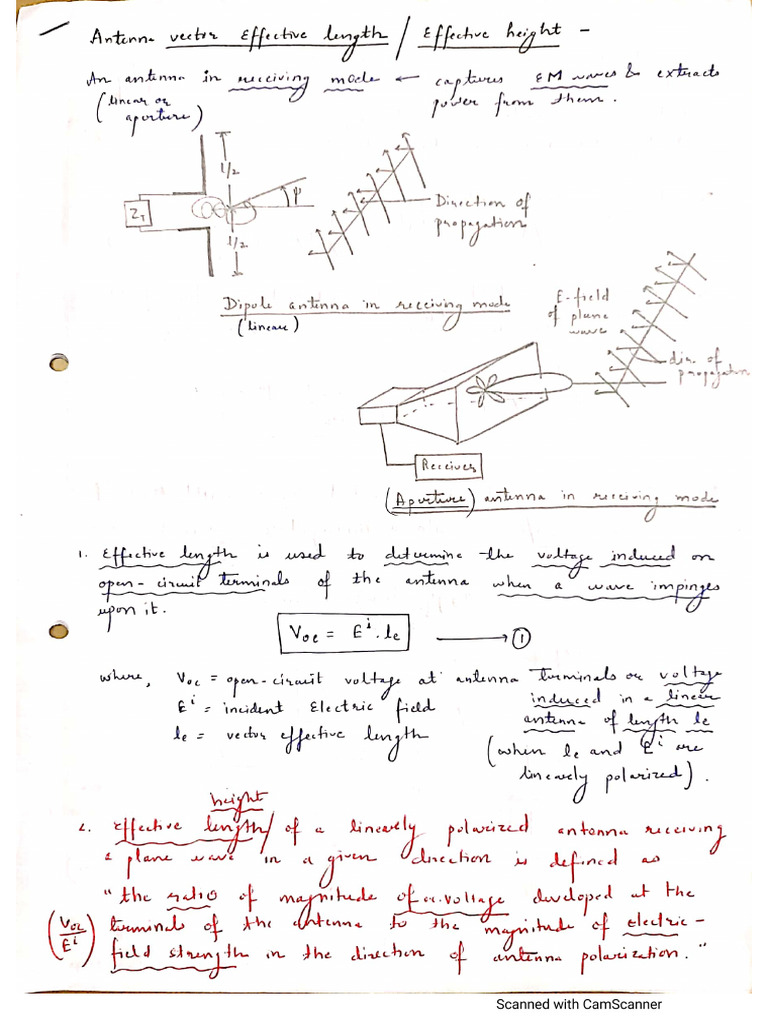 Antenna vector Effective length / Effective height -
An antenna in receiving mode ← captures EM waves & extracts
(linear or aperture)
power from them.
l/2
ψ
Z_T
l/2
Direction of
propagation
Dipole antenna in receiving mode
(linear)
E-field
of plane
wave
dir. of
propagation
Receiver
(Aperture) antenna in receiving mode
1. Effective length is used to determine the voltage induced on
open-circuit terminals of the antenna when a wave impinges
upon it.
Voc = E^i . le → ①
where, Voc = open-circuit voltage at antenna terminals or voltage
induced in a linear
E^i = incident Electric field
antenna of length le
le = vector effective length
(when le and E^i are
linearly polarized).
height
2. Effective length/ of a linearly polarized antenna receiving
a plane wave in a given direction is defined as
"the ratio of magnitude of o.c. voltage developed at the
(Voc/E^i) terminals of the antenna to the magnitude of electric-
field strength in the direction of antenna polarization."
Scanned with CamScanner